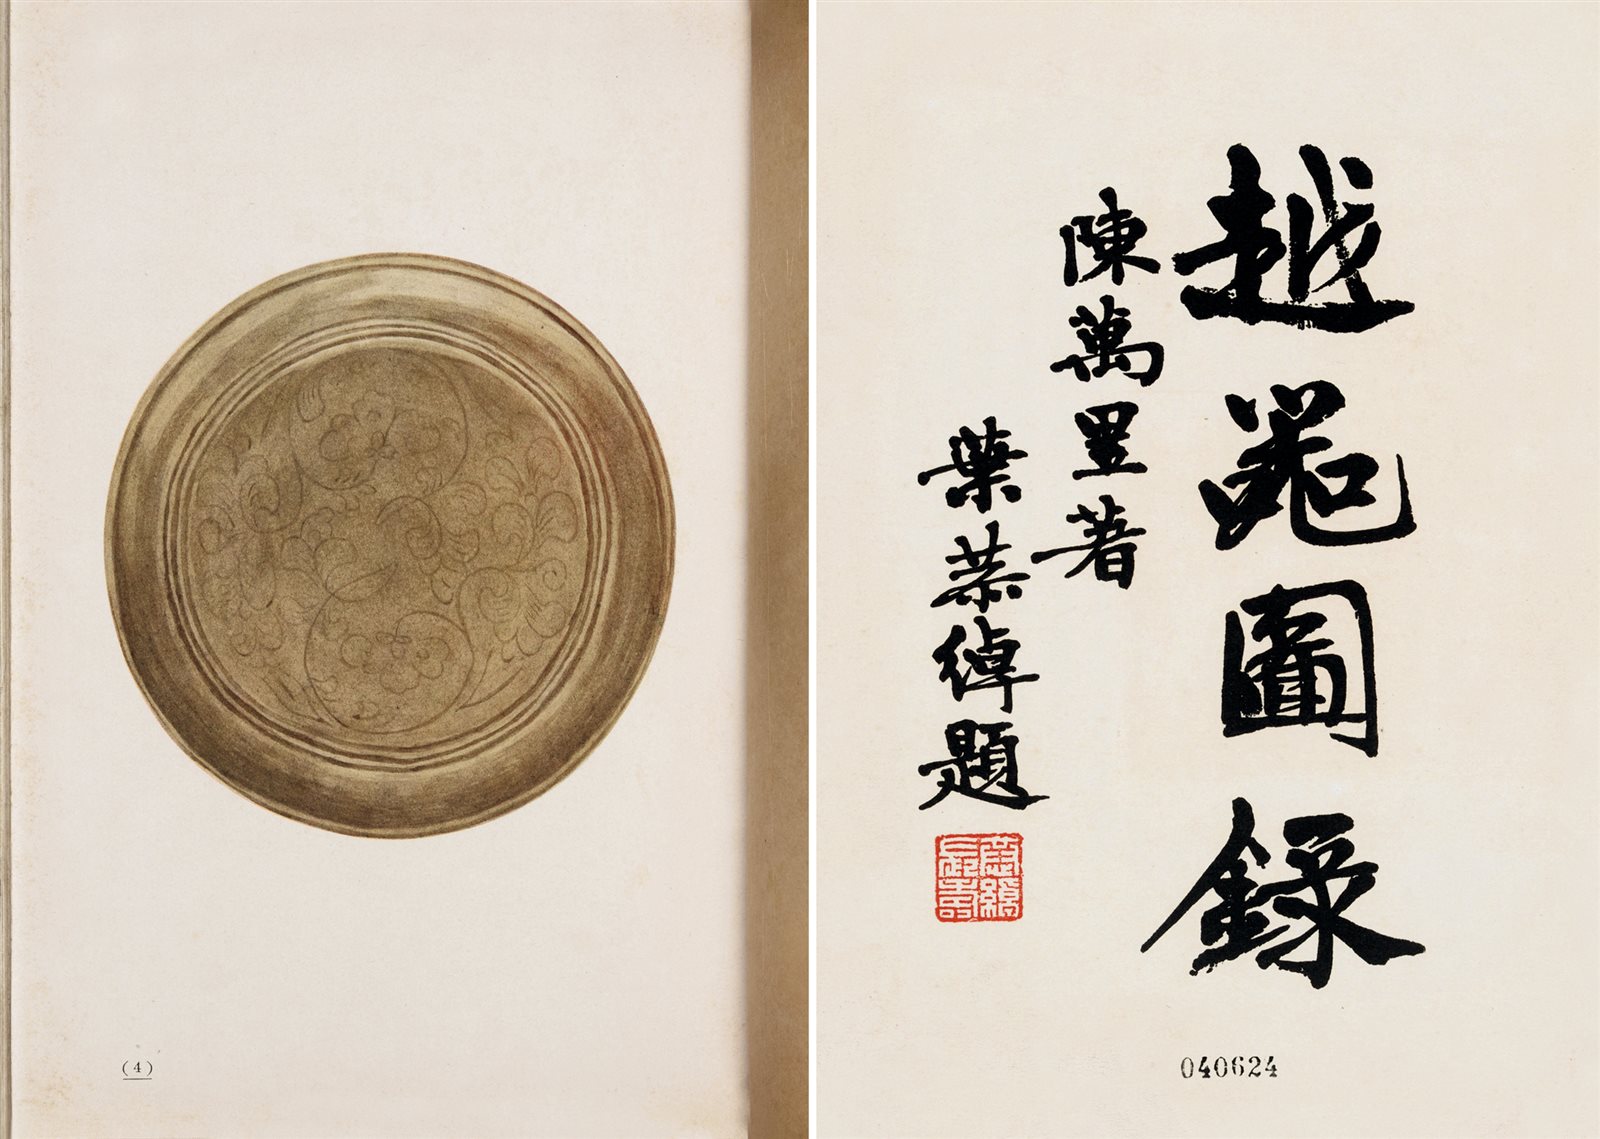 (4)
越器圖錄
陳萬里著
葉恭綽題
040624